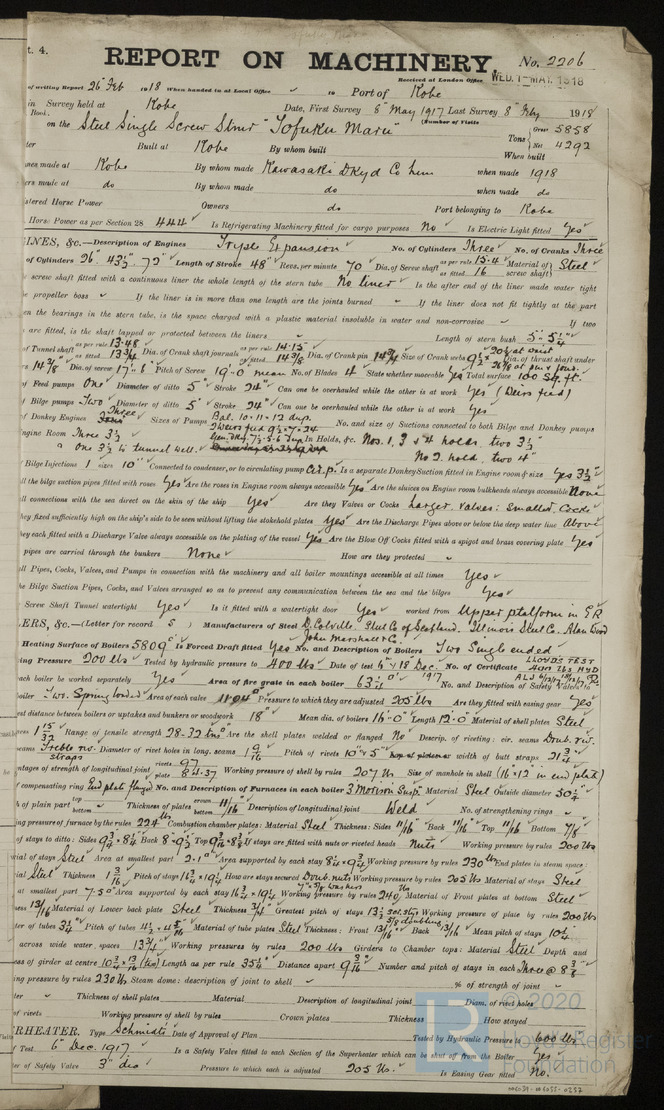 t. 4.
REPORT ON MACHINERY. No. 2206
Received at London Office WED. 1-MAY. 1918
of writing Report 26 Feb 1918 When handed in at Local Office to Port of Kobe
in Survey held at Kobe Date, First Survey 8 May 1917 Last Survey 8 Feby 1918
Book. (Number of Visits
on the Steel Single Screw Stmr "Tofuku Maru" Tons Gross 5858 Net 4292
Built at Kobe By whom built When built
made at Kobe By whom made Kawasaki Dkyd Co when made 1918
made at do By whom made do when made do
Horse Power Owners do Port belonging to Kobe
Hors: Power as per Section 28 444 Is Refrigerating Machinery fitted for cargo purposes No Is Electric Light fitted Yes
INES, &c.—Description of Engines Triple Expansion No. of Cylinders Three No. of Cranks Three
of Cylinders 26" 43½" 72" Length of Stroke 48" Revs. per minute 70 Dia. of Screw shaft as per rule 15.4 as fitted 16 Material of screw shaft Steel
screw shaft fitted with a continuous liner the whole length of the stern tube No liner Is the after end of the liner made water tight
propeller boss If the liner is in more than one length are the joints burned If the liner does not fit tightly at the part
the bearings in the stern tube, is the space charged with a plastic material insoluble in water and non-corrosive If two
are fitted, is the shaft lapped or protected between the liners Length of stern bush 5'-5¼"
Tunnel shaft as per rule 13.48 as fitted 13¾ Dia. of Crank shaft journals as per rule 14.15 as fitted 14⅜ Dia. of Crank pin 14⅜ Size of Crank webs Dia. of thrust shaft under
14⅜ Dia. of screw 17'-6" Pitch of Screw 19'-0" mean No. of Blades 4 State whether moveable Yes Total surface 100 Sq. ft.
of Feed pumps One Diameter of ditto 5" Stroke 24" Can one be overhauled while the other is at work Yes (Weirs feed)
of Bilge pumps Two Diameter of ditto 5" Stroke 24" Can one be overhauled while the other is at work Yes
of Donkey Engines Three Sizes of Pumps Bal. 10.11.12 dup. No. and size of Suctions connected to both Bilge and Donkey pumps
Engine Room Three 3½ In Holds, &c. Nos. 1, 3 & 4 holds two 3½"
One 3½ to tunnel well. No 2 hold, two 4"
Bilge Injections 1 sizes 10" Connected to condenser, or to circulating pump Cir. p. Is a separate Donkey Suction fitted in Engine room & size Yes 3½"
all the bilge suction pipes fitted with roses Yes Are the roses in Engine room always accessible Yes Are the sluices on Engine room bulkheads always accessible None
all connections with the sea direct on the skin of the ship Yes Are they Valves or Cocks Larger Valves: smaller Cocks
they fixed sufficiently high on the ship's side to be seen without lifting the stokehold plates Yes Are the Discharge Pipes above or below the deep water line Above
they each fitted with a Discharge Valve always accessible on the plating of the vessel Yes Are the Blow Off Cocks fitted with a spigot and brass covering plate Yes
pipes are carried through the bunkers None How are they protected
all Pipes, Cocks, Valves, and Pumps in connection with the machinery and all boiler mountings accessible at all times Yes
the Bilge Suction Pipes, Cocks, and Valves arranged so as to prevent any communication between the sea and the bilges Yes
Screw Shaft Tunnel watertight Yes Is it fitted with a watertight door Yes worked from Upper platform in ER
ERS, &c.—(Letter for record S) Manufacturers of Steel D. Colville, Steel Co of Scotland, Illinois Steel Co, Alan Wood
John Marshall & Co.
Heating Surface of Boilers 5809 Is Forced Draft fitted Yes No. and Description of Boilers Two Single ended
ing Pressure 200 lbs Tested by hydraulic pressure to 400 lbs Date of test 6 & 18 Dec. 1917 No. of Certificate LLOYD'S TEST
each boiler be worked separately Yes Area of fire grate in each boiler 63 No. and Description of Safety Valves to
boiler Two Spring loaded Area of each valve 11.04 Pressure to which they are adjusted 205 lbs Are they fitted with easing gear Yes
distance between boilers or uptakes and bunkers or woodwork 18" Mean dia. of boilers 16'-0" Length 12'-0" Material of shell plates Steel
Range of tensile strength 28-32 tns Are the shell plates welded or flanged No Descrip. of riveting: cir. seams Doub. riv.
seams Treble riv. straps Diameter of rivet holes in long. seams 1 9/16 Pitch of rivets 10" & 5" width of butt straps 21¾
ntages of strength of longitudinal joint rivets 97 plate 84.37 Working pressure of shell by rules 207 lbs Size of manhole in shell (16×12 in end plate)
compensating ring End plate flanged No. and Description of Furnaces in each boiler 3 Morison Susp. Material Steel Outside diameter 50½"
of plain part top bottom Thickness of plates crown bottom 11/16 Description of longitudinal joint Weld No. of strengthening rings
ing pressure of furnace by the rules 224 lbs Combustion chamber plates: Material Steel Thickness: Sides 11/16 Back 11/16 Top 11/16 Bottom 7/8
of stays to ditto: Sides 9¾×8¼ Back 8×9½ Top 9⅜×8⅜ If stays are fitted with nuts or riveted heads Nuts Working pressure by rules 200 lbs
ial of stays Steel Area at smallest part 2.1 Area supported by each stay 8¼×9¾ Working pressure by rules 230 lbs End plates in steam space
ial Steel Thickness 1 3/16 Pitch of stays 16¾×19¼ How are stays secured Doub. nuts Working pressure by rules 205 lbs Material of stays Steel
at smallest part 7.50 Area supported by each stay 16¾×19¼ Working pressure by rules 240 lbs Material of Front plates at bottom Steel
ess 13/16 Material of Lower back plate Steel Thickness ¾ Greatest pitch of stays 13½ Working pressure of plate by rules 200 lbs
ter of tubes 3¼ Pitch of tubes Material of tube plates Steel Thickness: Front 13/16 Back 13/16 Mean pitch of stays
across wide water spaces 13¾" Working pressures by rules 200 lbs Girders to Chamber tops: Material Steel Depth and
ess of girder at centre Length as per rule 35¼ Distance apart 9 Number and pitch of stays in each Three @ 8⅜
ing pressure by rules 230 lbs Steam dome: description of joint to shell % of strength of joint
ter Thickness of shell plates Material Description of longitudinal joint Diam. of rivet holes
of rivets Working pressure of shell by rules Crown plates Thickness How stayed
RHEATER. Type Schmidts Date of Approval of Plan Tested by Hydraulic Pressure to 600 lbs
Test 6 Dec. 1917 Is a Safety Valve fitted to each Section of the Superheater which can be shut off from the Boiler Yes
er of Safety Valve 3" dia Pressure to which each is adjusted 205 lbs. Is Easing Gear fitted No.
© 2020
Lloyd's Register
Foundation